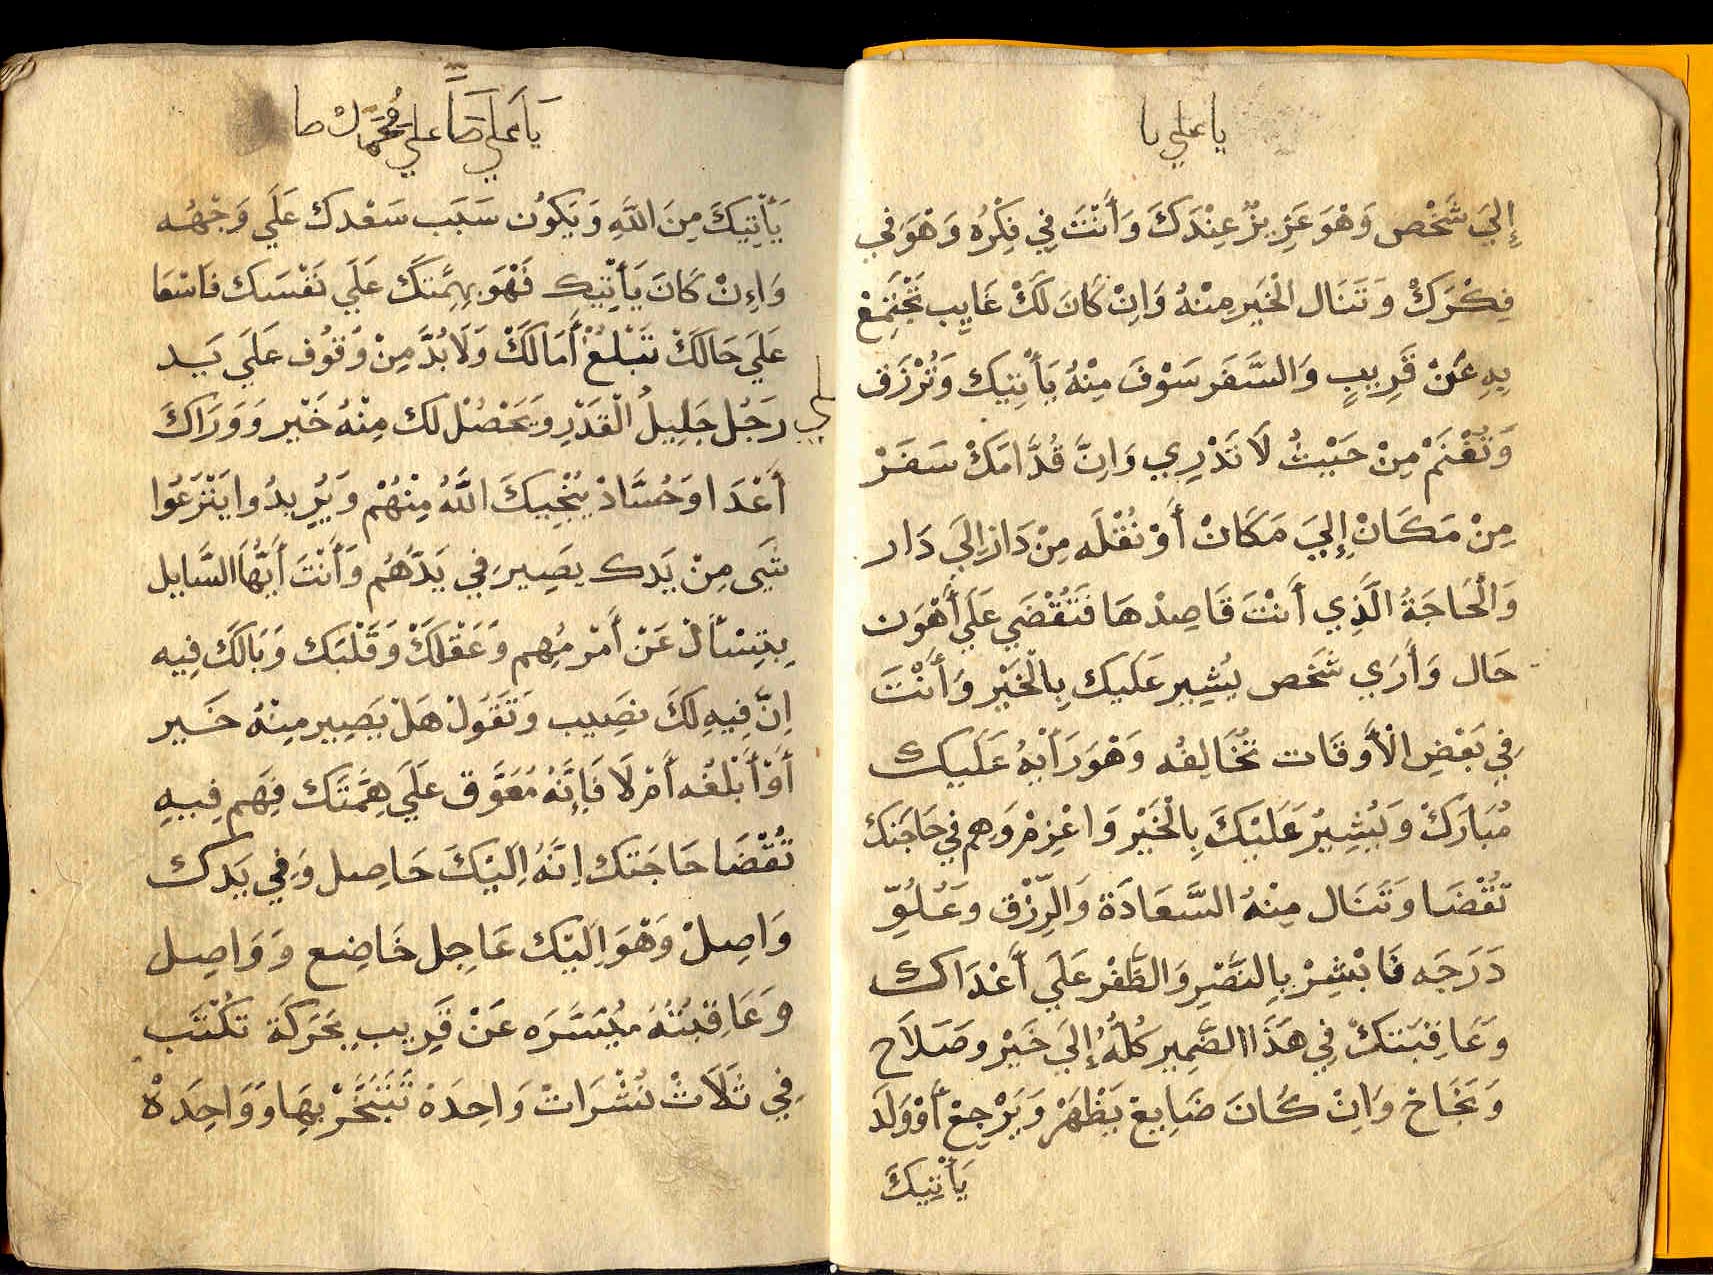 يا علي يا
إِلَي شَخْص وَهْوَ عَزِيزٌ عِنْدَكَ وَأَنْتَ فِي فِكْرُه وَهْوَ فِي
فِكْرَكْ وَتَنَال الْخَير مِنْهُ وَاِنْ كَانَ لَكْ غَايِب تَجْتَمِعْ
بِهِ عَنْ قَرِيبٍ وَالسَّفَر سَوْفَ مِنْهُ يَأْتِيك وَتُرْزَق
وَتَغْنَمْ مِنْ حَيْثُ لَا تَدْرِي وَاِنَّ قُدَّامَكْ سَفَرْ
مِنْ مَكَانْ إِلَيَ مَكَانْ أَوْ نُقْلَه مِنْ دَارْ اِلَيَ دَار
وَالْحَاجَةُ الَّذِي أَنْتَ قَاصِدْهَا فَتُقْضَي عَلَي أَهْوَن
حَال وَأَرَي شَخَص يُشِير عَلَيك بِالْخَيْر وَأَنْتَ
فِي بَعْضِ الْأَوقَات تُخَالِفُه وَهْوَ رَأْيُهُ عَلَيك
مُبَارَكْ وَيُشِيرُ عَلَيْكَ بِالْخَيْر وَاعْزِمْ وَهِم فِي حَاجَتك
تُقْضَا وَتَنَال مِنْهُ السَّعَادَة وَالرِّزْق وَعُلُوِّ
دَرَجَه فَابْشِرْ بِالنَّصْرِ وَالظَّفْر عَلَي أَعْدَاك
وَعَاقِبَتكْ فِي هَذَا الضَّمِير كُلُّهُ إِلَيَ خَيْر وصَلَاح
وَنَجَاحْ وَاِنْ كَانَ ضَايِعْ يَظْهَرْ وَيَرْجِعْ أَوْ وَلَد
يَأْتِيكَ
يَا عَلي صَا علي مُحَمَّد ك صا
يَأْتِيكَ مِنَ اللَّهِ وَيَكُون سَبَب سَعْدك عَلَي وَجْهُه
وَاِنْ كَانَ يَأْتِيك فَهْوَ بِهِمَّتَك عَلَي نَفْسَك فَاسْعَا
عَلَي حَالَكْ تَبْلُغْ أَمَالَكْ وَلَا بُدَّ مِنْ وَقُوف عَلَي يَد
رَجُل جَلِيلُ الْقَدْرِ وَيَحْصُلْ لك مِنْهُ خَيْر وَوَرَاكَ
أَعْدَا وَحُسَّادْ يُنْجِيكَ اللَّهُ مِنْهُمْ وَيُرِيدُوا يَنْزَعُوا
شَي مِنْ يَدك يَصِير فِي يَدَّهُم وَأَنْتَ أَيُّهَا السَّايِل
بِتِسْأَلْ عَنْ أَمْر مُهِم وَعَقْلَكْ وَقَلْبَك وَبَالَكَ فِيه
اِنَّ فِيهِ لَكَ نصَِيب وَتَقَولْ هَلْ يَصِير مِنْهُ خَير
أَوْ أَبْلُغُه أَمْ لَا فَإِنَّهُ مُعَوَّق عَلَيَ هِمَّتَك فَهِم فِيهِ
تُقْضَا حَاجَتك اِنَّهُ اِلَيْكَ حَاصِل وَفِي يَدك
وَاصِلْ وَهْوَ اِلَيْك عَاجِل خَاضِع وَوَاصِل
وَعَاقِبَتُهُ مُيَسَّرَه عَنْ قَرِيب بِحَرَكَة تَكْتُب
فِي ثَلَاثْ نُشْرَاتْ وَاحِدَهْ تَتَبَخَّرْ بِهَا وَوَاحِدَهْ